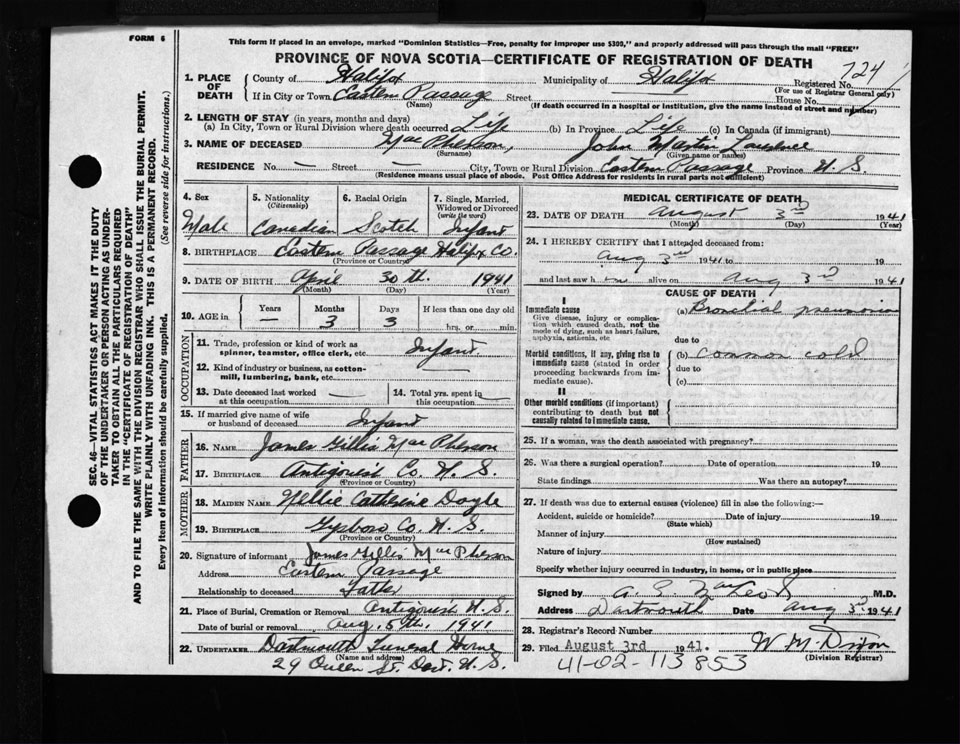 FORM 6
This form if placed in an envelope, marked "Dominion Statistics—Free, penalty for improper use $300," and properly addressed will pass through the mail "FREE"
PROVINCE OF NOVA SCOTIA—CERTIFICATE OF REGISTRATION OF DEATH
SEC. 46—VITAL STATISTICS ACT MAKES IT THE DUTY
OF THE UNDERTAKER OR PERSON ACTING AS UNDER-
TAKER TO OBTAIN ALL THE PARTICULARS REQUIRED
IN THE "CERTIFICATE OF REGISTRATION OF DEATH"
AND TO FILE THE SAME WITH THE DIVISION REGISTRAR WHO SHALL ISSUE THE BURIAL PERMIT.
WRITE PLAINLY WITH UNFADING INK. THIS IS A PERMANENT RECORD.
Every item of information should be carefully supplied. (See reverse side for instructions.)
1. PLACE OF DEATH
County of Halifx Municipality of Halifx Registered No. 724
(For use of Registrar General only)
If in City or Town Eastern Passage Street House No.
(Name) (If death occurred in a hospital or institution, give the name instead of street and number)
2. LENGTH OF STAY (in years, months and days)
(a) In City, Town or Rural Division where death occurred Life (b) In Province Life (c) In Canada (if immigrant)
3. NAME OF DECEASED Mac Pherson, John Martin Lawrence
(Surname) (Given name or names)
RESIDENCE No. — Street — City, Town or Rural Division Eastern Passage Province N. S.
(Residence means usual place of abode. Post Office Address for residents in rural parts not sufficient)
4. Sex
Male
5. Nationality
(Citizenship)
Canadian
6. Racial Origin
Scotch
7. Single, Married,
Widowed or Divorced
(write the word)
Infant
8. BIRTHPLACE Eastern Passage Halifx Co.
(Province or Country)
9. DATE OF BIRTH April 30th. 1941
(Month) (Day) (Year)
10. AGE in Years Months Days If less than one day old
— 3 3 hrs. or min.
OCCUPATION
11. Trade, profession or kind of work as
spinner, teamster, office clerk, etc. Infant
12. Kind of industry or business, as cotton-
mill, lumbering, bank, etc. —
13. Date deceased last worked
at this occupation —
14. Total yrs. spent in
this occupation —
15. If married give name of wife
or husband of deceased Infant
FATHER
16. NAME James Gillis Mac Pherson
17. BIRTHPLACE Antigonish Co. N. S.
(Province or Country)
MOTHER
18. MAIDEN NAME Nellie Catherine Doyle
19. BIRTHPLACE Gysboro Co. N. S.
(Province or Country)
20. Signature of informant James Gillis Mac Pherson
Address Eastern Passage
Relationship to deceased Father
21. Place of Burial, Cremation or Removal Antigonish N. S.
Date of burial or removal Aug. 5th. 1941
22. UNDERTAKER Dartmouth Funeral Home
(Name and address)
29 Queen St. Dart. N. S.
MEDICAL CERTIFICATE OF DEATH
23. DATE OF DEATH August 3rd 1941
(Month) (Day) (Year)
24. I HEREBY CERTIFY that I attended deceased from:
Aug 3rd 1941 to 19
and last saw h im alive on Aug 3rd 1941
CAUSE OF DEATH
I
Immediate cause
Give disease, injury or complica-
tion which caused death, not the
mode of dying, such as heart failure,
asphyxia, asthenia, etc
(a) Bronchial pneumonia
due to
Morbid conditions, if any, giving rise to
immediate cause (stated in order
proceeding backwards from im-
mediate cause).
(b) common cold
due to
(c)
II
Other morbid conditions (if important)
contributing to death but not
causally related to immediate cause.
25. If a woman, was the death associated with pregnancy?
26. Was there a surgical operation? Date of operation 19
State findings Was there an autopsy?
27. If death was due to external causes (violence) fill in also the following:—
Accident, suicide or homicide? Date of injury 19
(State which)
Manner of injury
(How sustained)
Nature of injury
Specify whether injury occurred in industry, in home, or in public place
Signed by A. G. MacLeod M.D.
Address Dartmouth Date Aug 3rd 1941
28. Registrar's Record Number
29. Filed August 3rd 1941. W M Dixon
(Division Registrar)
41-02-113853